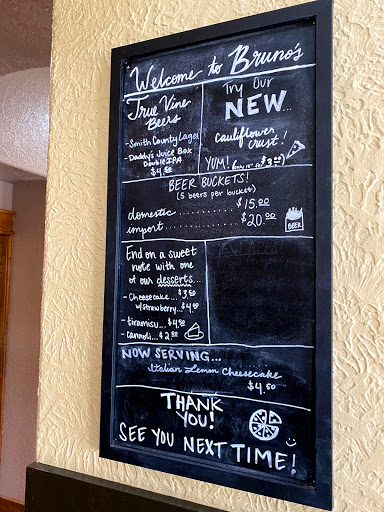 Welcome to Bruno's
True Vine
Beers
- Smith County Lager
- Daddy's Juice Box
Double IPA
$4.50
Try Our
NEW...
cauliflower
crust!
YUM! (only 10" for $3.00)
BEER BUCKETS!
(5 beers per bucket)
domestic ........... $15.00
import ........... $20.00
BEER
End on a sweet
note with one
of our desserts...
- Cheesecake... $3.50
w/strawberry... $4.00
- tiramisu... $4.50
- cannoli... $2.50
NOW SERVING...
Italian Lemon Cheesecake
$4.50
THANK
YOU!
SEE YOU NEXT TIME!